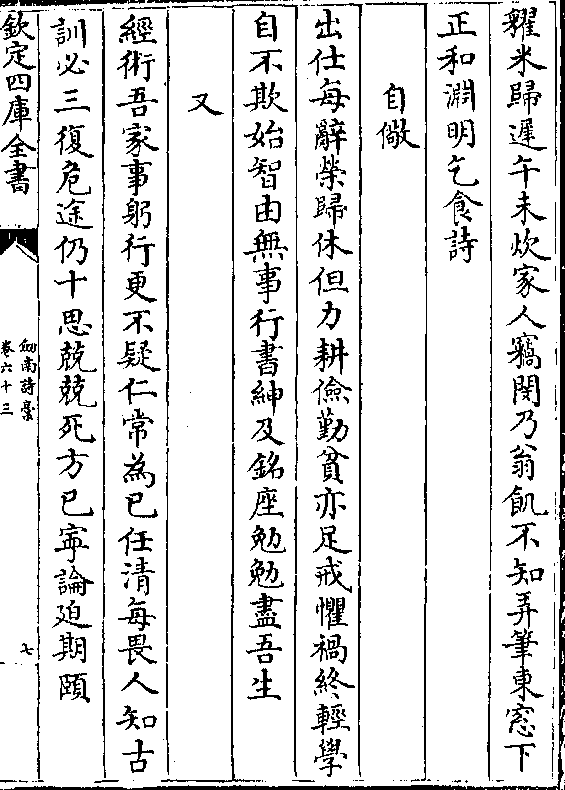 糴米歸遲午未炊家人竊閔乃翁飢不知弄筆東窓下
正和淵明乞食詩
自儆
出仕每辭榮歸休但力耕儉勤貧亦足戒懼禍終輕學
自不欺始智由無事行書紳及銘座勉勉盡吾生
又
經術吾家事躬行更不疑仁常為己任清每畏人知古
訓必三復危途仍十思兢兢死方已寧論廹期頤
欽定四庫全書
劍南詩藁
卷六十三
七